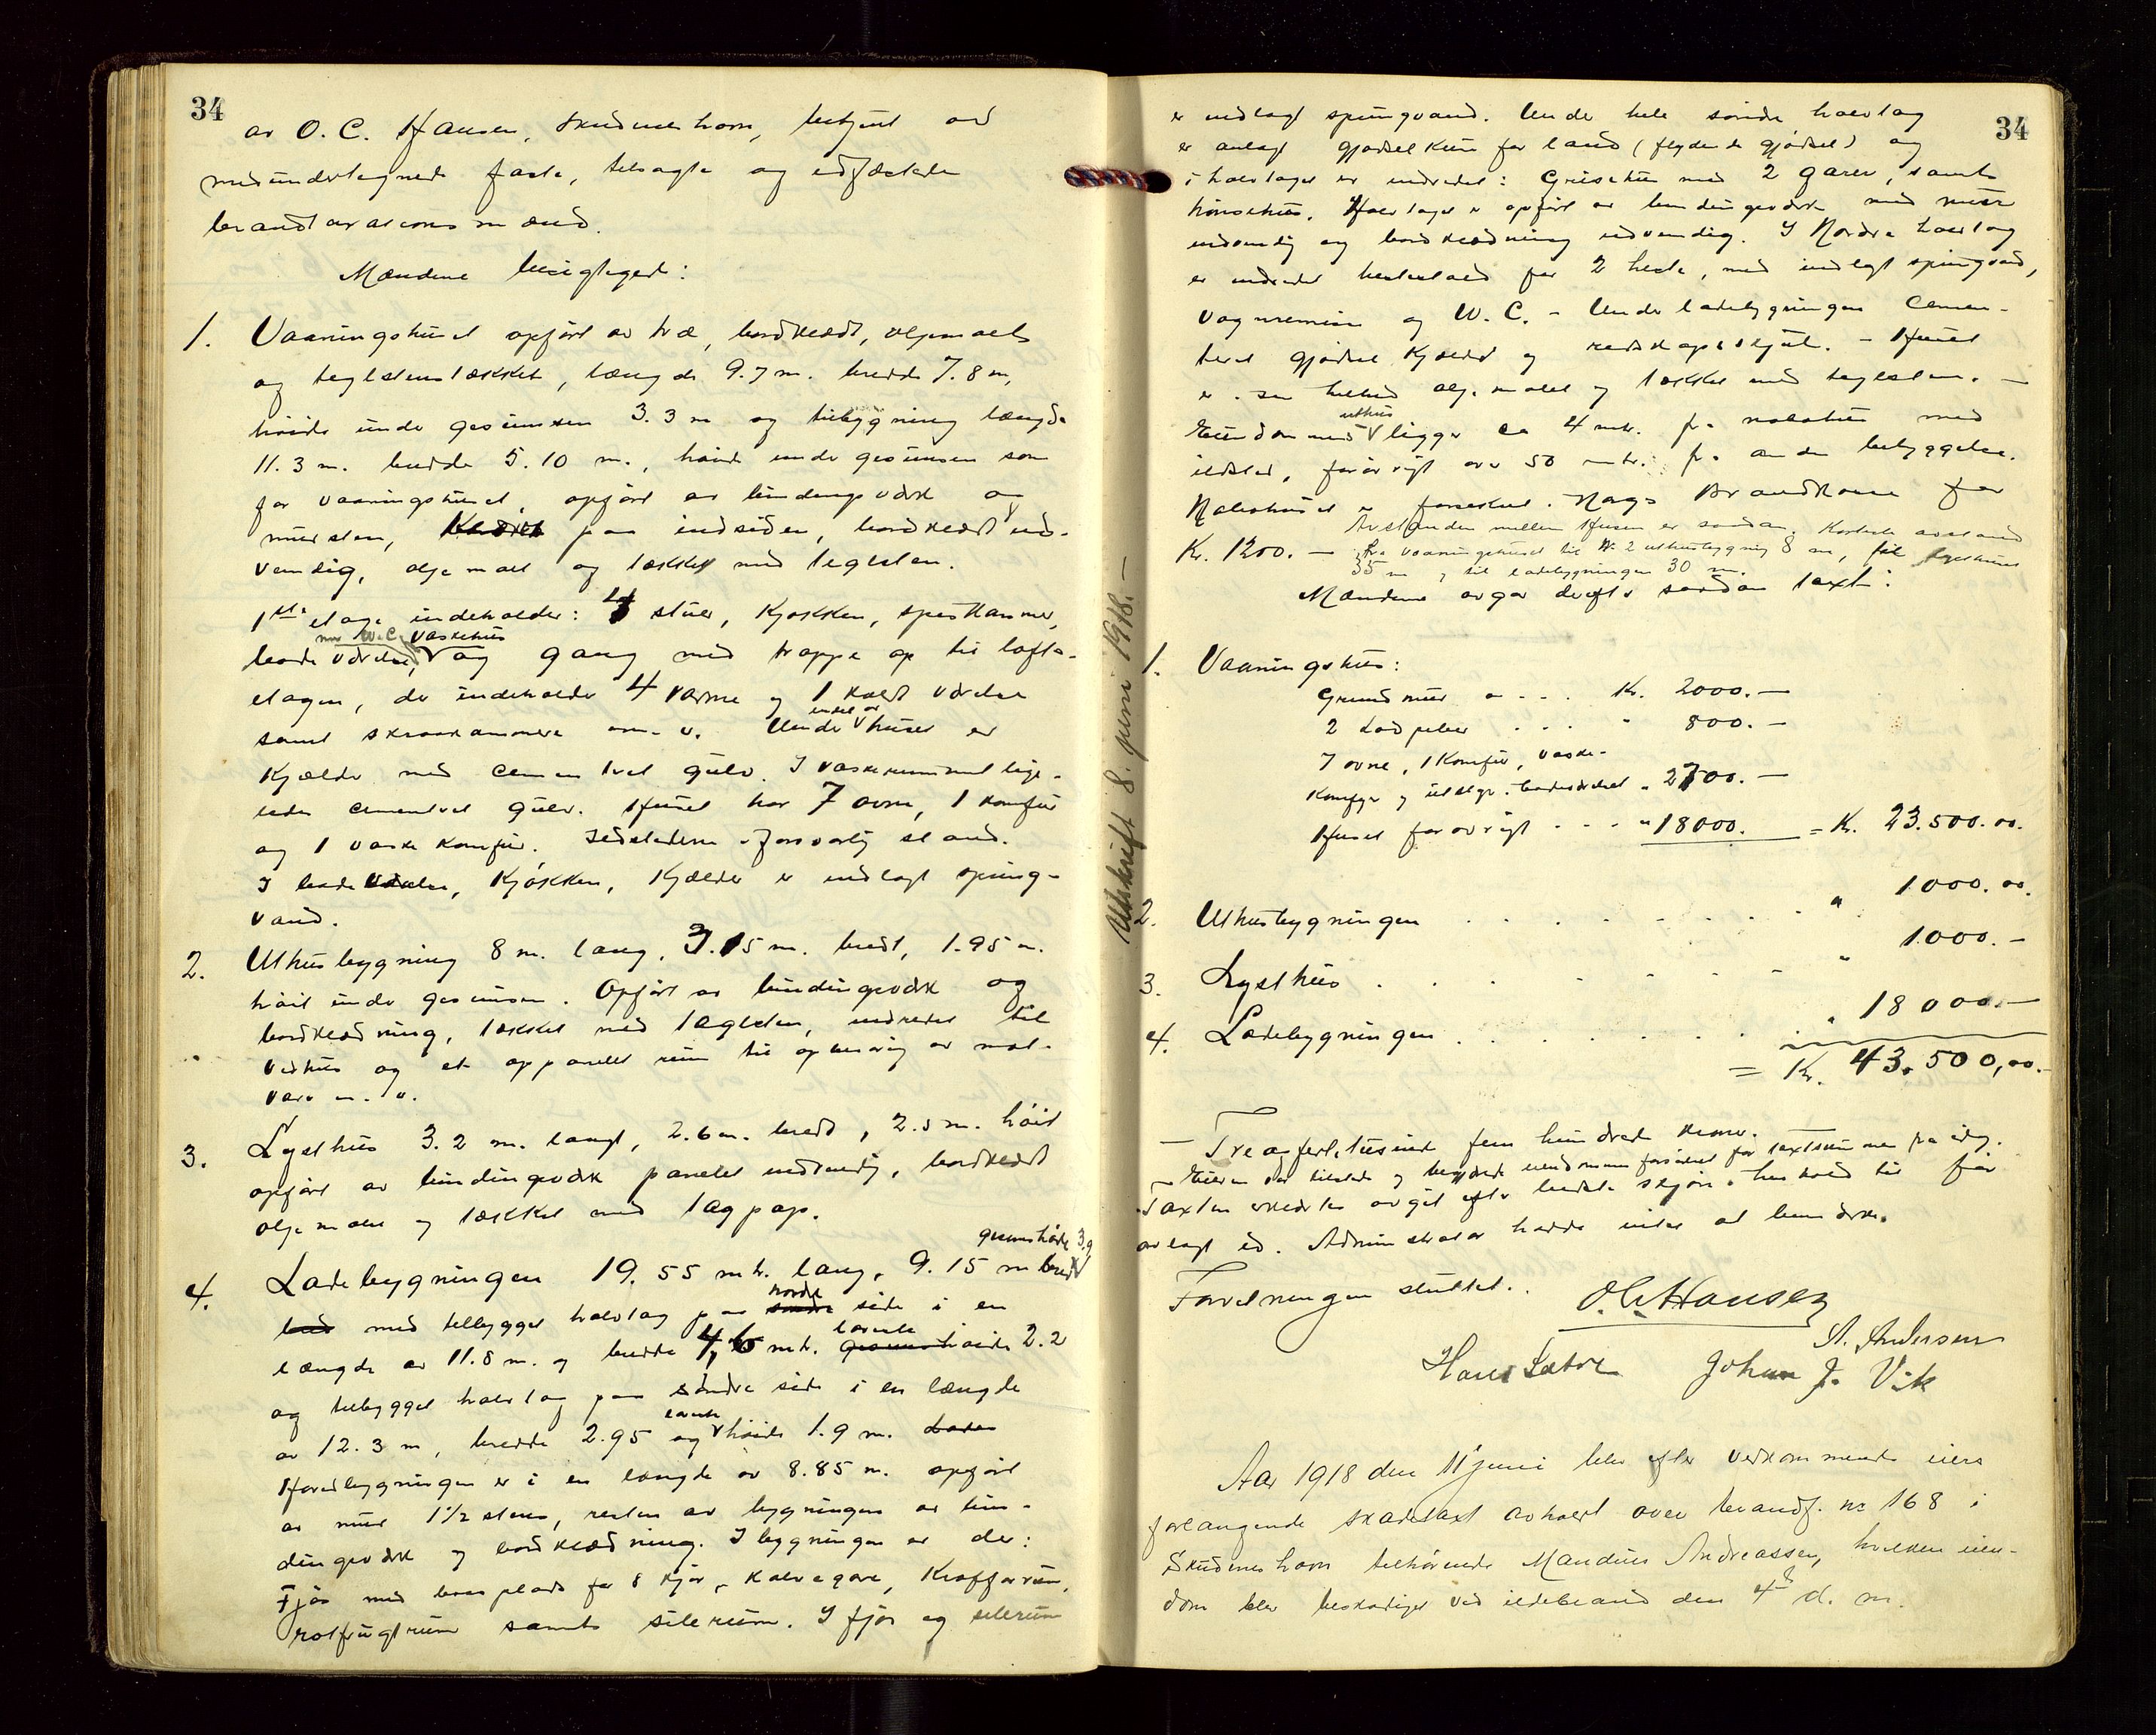 34
av O. C. Hansen, Skudeneshavn, betjent av
medundertegnede faste, tilsagte og edfæstede
brandtaxationsmænd.
Mændene besigtiget:
1. Vaaningshuset opført av træ, bordklædt, oljemalt
og teglstenstækket, længde 9.7 m. bredde 7.8 m,
høide under gesimsen 3.3 m og tilbygning længde
11.3 m. bredde 5.10 m., høide under gesimsen som
for vaaningshuset, opført av bindingsverk og
mursten, paa indsiden, bordklædt ud-
vendig, oljemalt og tækket med teglsten.
1ste etage indeholder: 4 stuer, kjøkken, spiskammer,
med W.C. vaskehus
badeværelse, og gang med trappe op til lofts-
etagen, der indeholder 4 varme og 1 koldt værelse
samt skraakammere m. v. Under endel av huset er
kjælder med cementert gulv. I vaskerummet lige-
ledes cementert gulv. Huset har 7 ovne, 1 komfur
og 1 vaskekomfur. Ildstederne i forsvarlig stand.
I badeværelse, kjøkken, kjælder er indlagt spring-
vand.
2. Uthusbygning 8 m. lang, 3.15 m. bredt, 1.95 m.
høit under gesimsen. Opført av bindingsverk og
bordklædning, tækket med taglsten, indredet til
vedhus og et oppanelt rum til opbevaring av mat-
varer m. v.
3. Lysthus 3.2 m. langt, 2.6 m. bredt, 2.5 m. høit
opført av bindingsverk panelet indvendig, bordklædt
oljemalet og tækket med tagpap.
gesimshøide 3.9
4. Ladebygningen 19.55 mtr. lang, 9.15 m bred
med tilbygget halvtag paa nordre side i en
længde av 11.8 m. og bredde 4,6 mtr. laveste høide 2.2
og tilbygget halvtag paa søndre side i en længde
av 12.3 m, bredde 2.95 og laveste høide 1.9 m.
Hovedbygningen er i en længde av 8.85 m. opført
av mur 1½ stens, resten av bygningen av bin-
dingsverk og bordklædning. I bygningen er der:
Fjøs med baasplads for 8 kjør, kalvegare, kraftforrum,
rotfrugtrum samt silerum. I fjøs og silerum
34
er indlagt springvand. Under hele søndre halvtag
er anlagt gjødselkum for land (flydende gjødsel) og
i halvtaget er indredet: Grisehus med 2 garer, samt
hønsehus. Halvtaget er opført av bindingsverk med mur
indvendig og bordklædning udvendig. I Nordre halvtag
er indredet hestestald for 2 heste, med indlagt springvand,
vognremise og W. C. – Under ladebygningen cemen-
teret gjødselkjælder og redskapsskjul. – Huset
er i sin helhed oljemalet og tækket med teglsten. –
Eiendommens uthus ligger ca 4 mtr. fra nabohus med
ildsted, forøvrigt over 50 mtr. fra anden bebyggelse.
Nabohuset er forsikret i Norges Brandkasse for
Kr. 1200. – Avstanden mellem husene er saadan: korteste avstand
fra vaaningshuset til N. 2 uthusbygning 8 m, til lysthuset
35 m og til ladebygningen 30 m.
Mændene avgav derefter saadan taxt:
1. Vaaningshus:
Grundmur a . . . Kr. 2000. –
2 Lodpiber . . . " 800. –
7 ovne, 1 Komfur, vaske-
komfyr og utstyr i badeværelset " 2700. –
Huset forøvrigt . . . " 18000. = Kr. 23.500.00.
2. Uthusbygningen . . . . . " 1000.00.
3. Lysthus . . . . . " 1000. –
4. Ladebygningen . . . . . " 18000. –
= Kr. 43.500,00. –
– Tre og førti tusinde fem hundrede kroner.
– Eieren var tilstede og begjærte eiendommen forsikret for taxtsummen fra idag.
Taxten erklærtes avgit efter bedste skjøn i henhold til før
avlagt ed. Administrator hadde intet at bemærke.
Forretningen sluttet.
O. C. Hansen
A. Andersen
Hans Sætre Johan J. Vik
Utskrift 8. juni 1918. –
Aar 1918 den 11 juni blev efter vedkommende eiers
forlangende skadetaxt avholdt over brandf. no 168 i
Skudeneshavn tilhørende Mandius Andreassen, hvilken eien-
dom blev beskadiget ved ildebrand den 4de d. m.